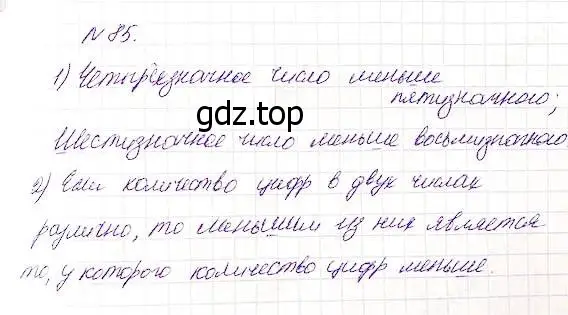 № 85.
1) Четырёхзначное число меньше
пятизначного;
gdz.top
Шестизначное число меньше восьмизначного
2) Если количество цифр в двух числах
различно, то меньшим из них является
то, у которого количество цифр меньше.